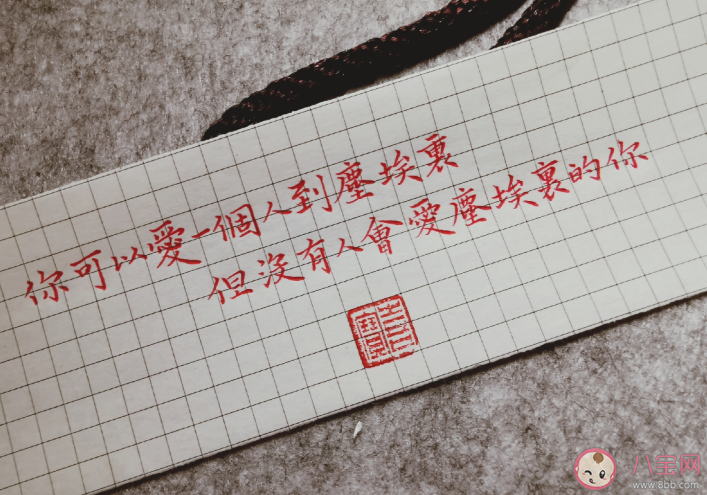 你可以愛一個人到塵埃裏
但沒有人會愛塵埃裏的你
八宝网
www.8bb.com